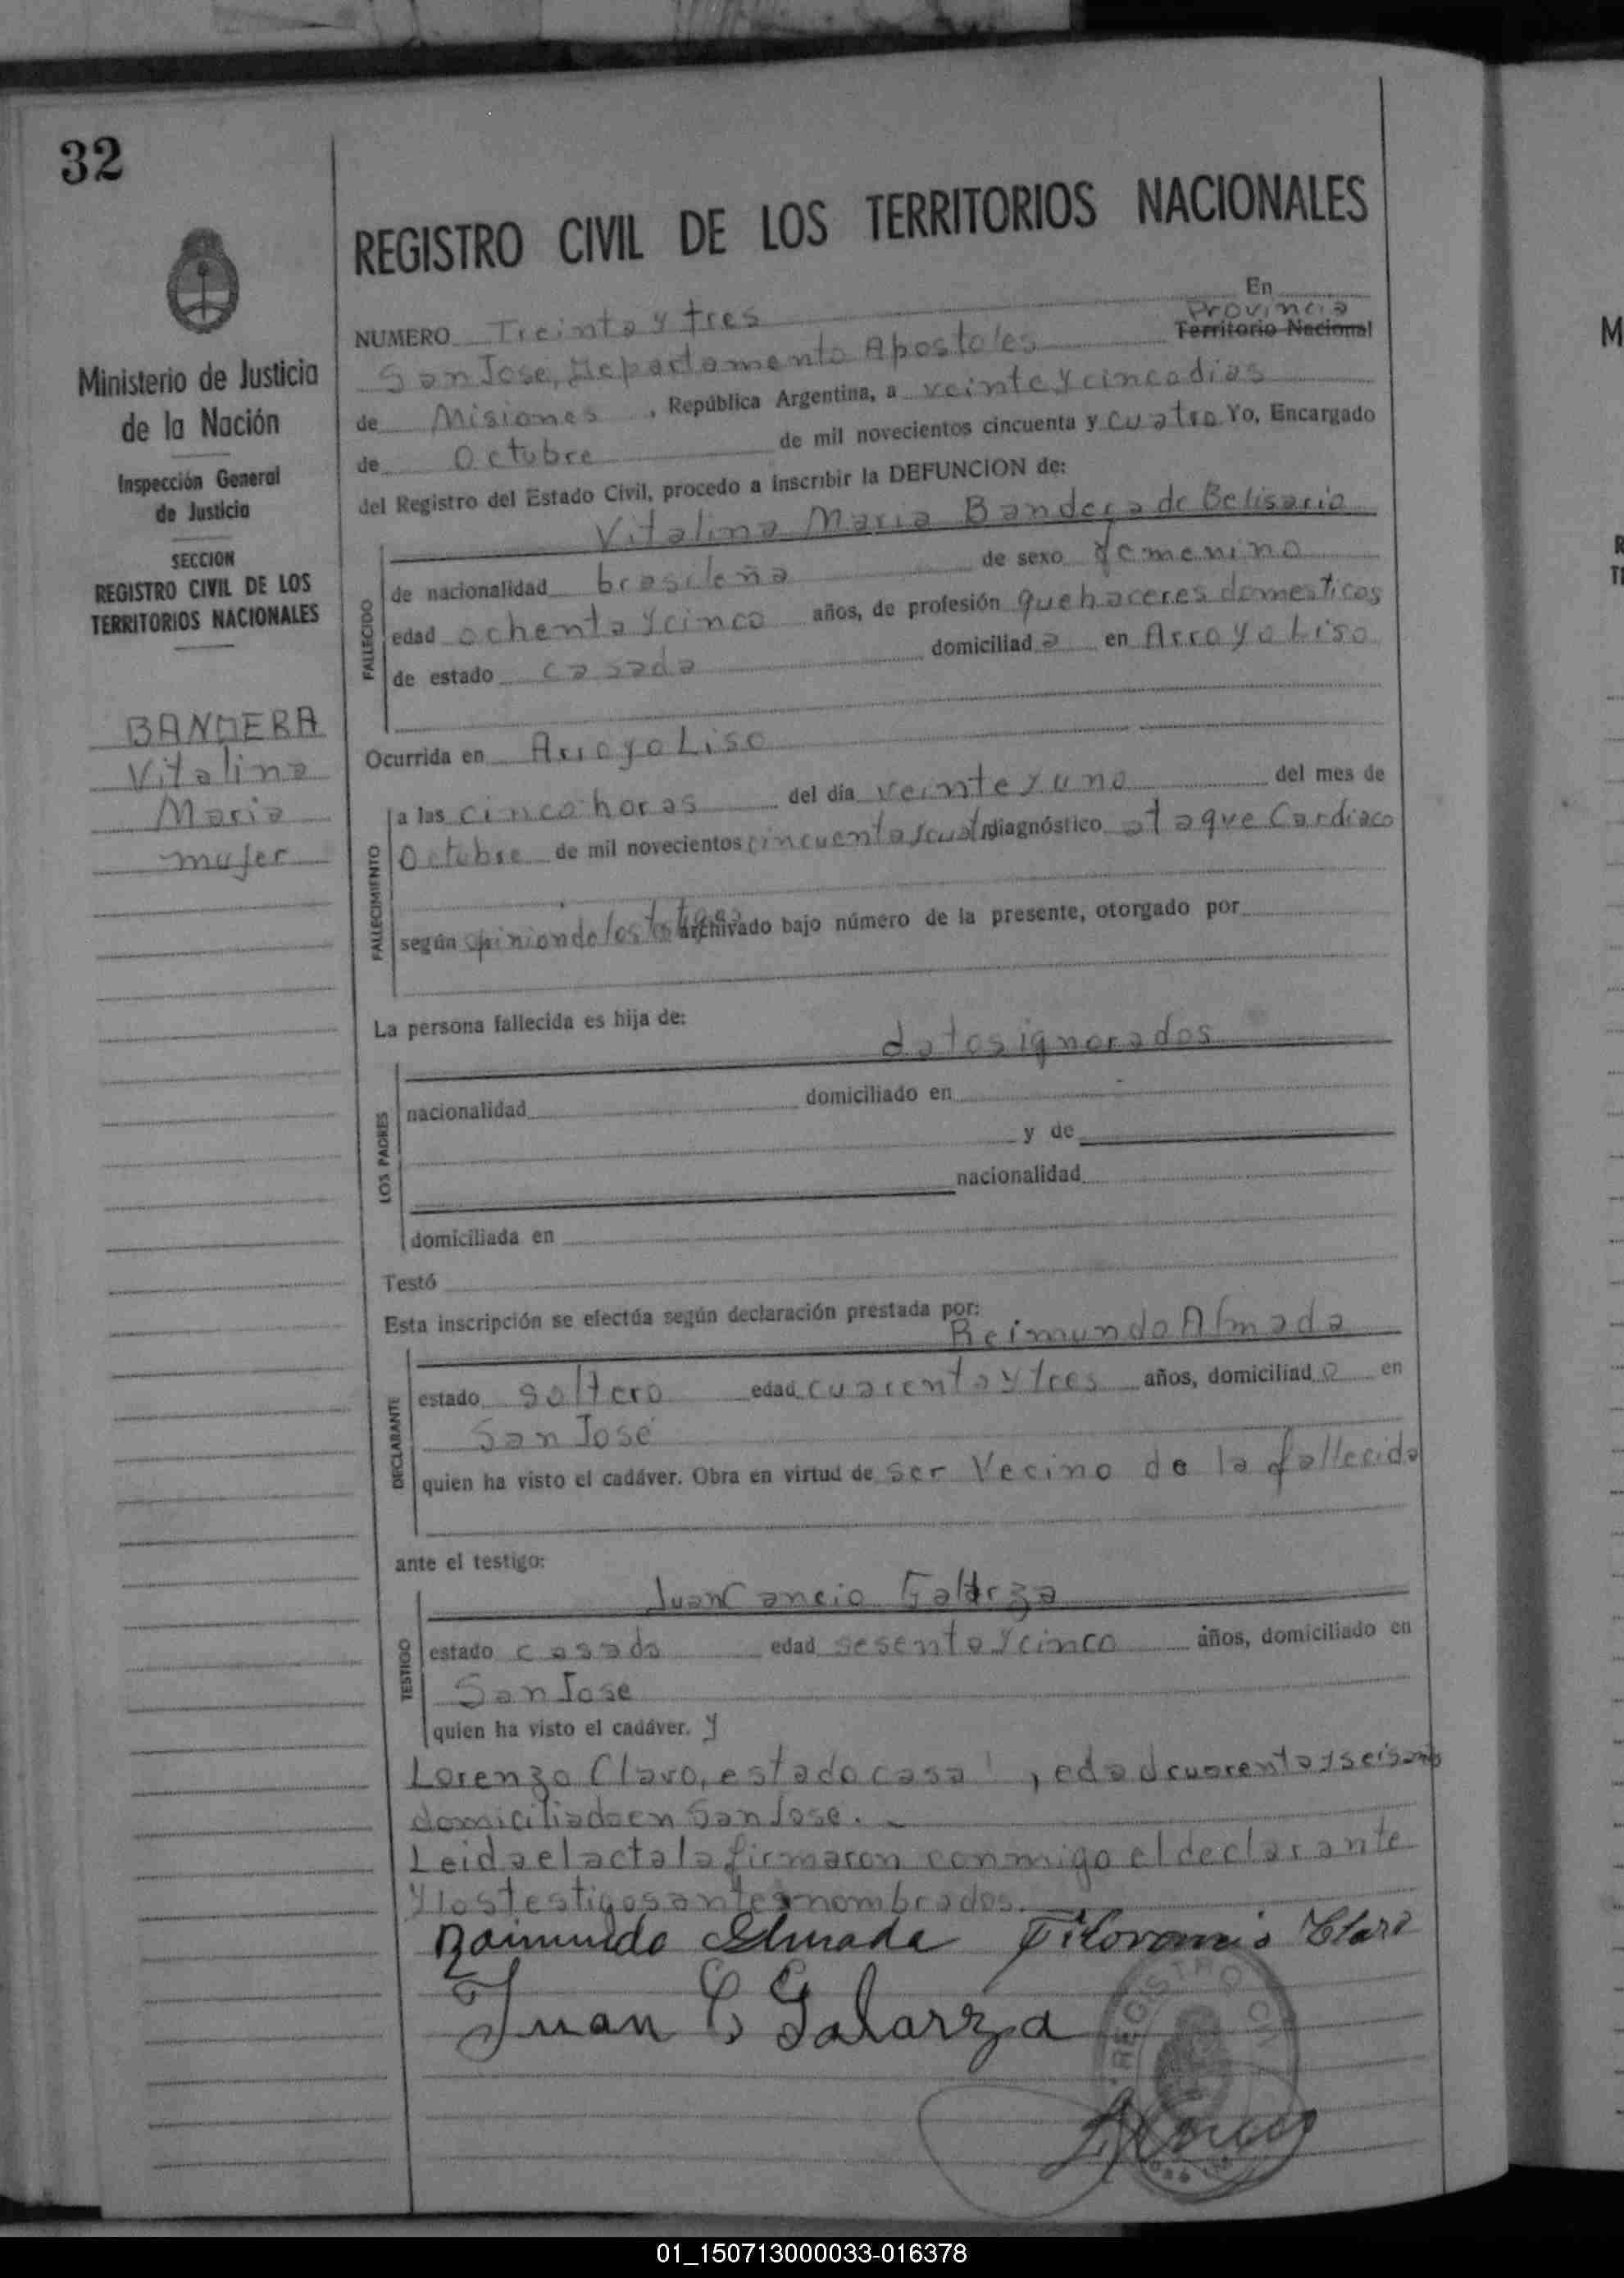 32
Ministerio de Justicia
de la Nación
Inspección General
de Justicia
SECCION
REGISTRO CIVIL DE LOS
TERRITORIOS NACIONALES
BANDERA
Vitalina
Maria
mujer
REGISTRO CIVIL DE LOS TERRITORIOS NACIONALES
En
NUMERO Treinta y tres Provincia
San Jose, Departamento Apostoles Territorio Nacional
de Misiones, República Argentina, a veinte y cinco dias
de Octubre de mil novecientos cincuenta y cuatro Yo, Encargado
del Registro del Estado Civil, procedo a inscribir la DEFUNCION de:
Vitalina Maria Bandera de Belisario
FALLECIDO
de nacionalidad brasileña de sexo femenino
edad ochenta y cinco años, de profesión quehaceres domesticos
de estado casada domiciliada en Arroyo Liso
Ocurrida en Arroyo Liso
FALLECIMIENTO
a las cinco horas del día veinte y uno del mes de
Octubre de mil novecientos cincuenta y cuatro diagnóstico ataque Cardiaco
según opinion de los testigos archivado bajo número de la presente, otorgado por
La persona fallecida es hija de:
datos ignorados
LOS PADRES
nacionalidad domiciliado en
y de
nacionalidad
domiciliada en
Testó
Esta inscripción se efectúa según declaración prestada por:
Reimundo Almada
DECLARANTE
estado soltero edad cuarenta y tres años, domiciliado en
San José
quien ha visto el cadáver. Obra en virtud de ser Vecino de la fallecida
ante el testigo:
Juan Cancio Galarza
TESTIGO
estado casado edad sesenta y cinco años, domiciliado en
San Jose
quien ha visto el cadáver. y
Lorenzo Claro, estado casa , edad cuarenta y seis años
domiciliado en San Jose.
Leida el acta la firmaron conmigo el declarante
y los testigos antes nombrados.
Raimundo Almada Claro
Juan C Galarza
REGISTRO CIVIL
01_150713000033-016378